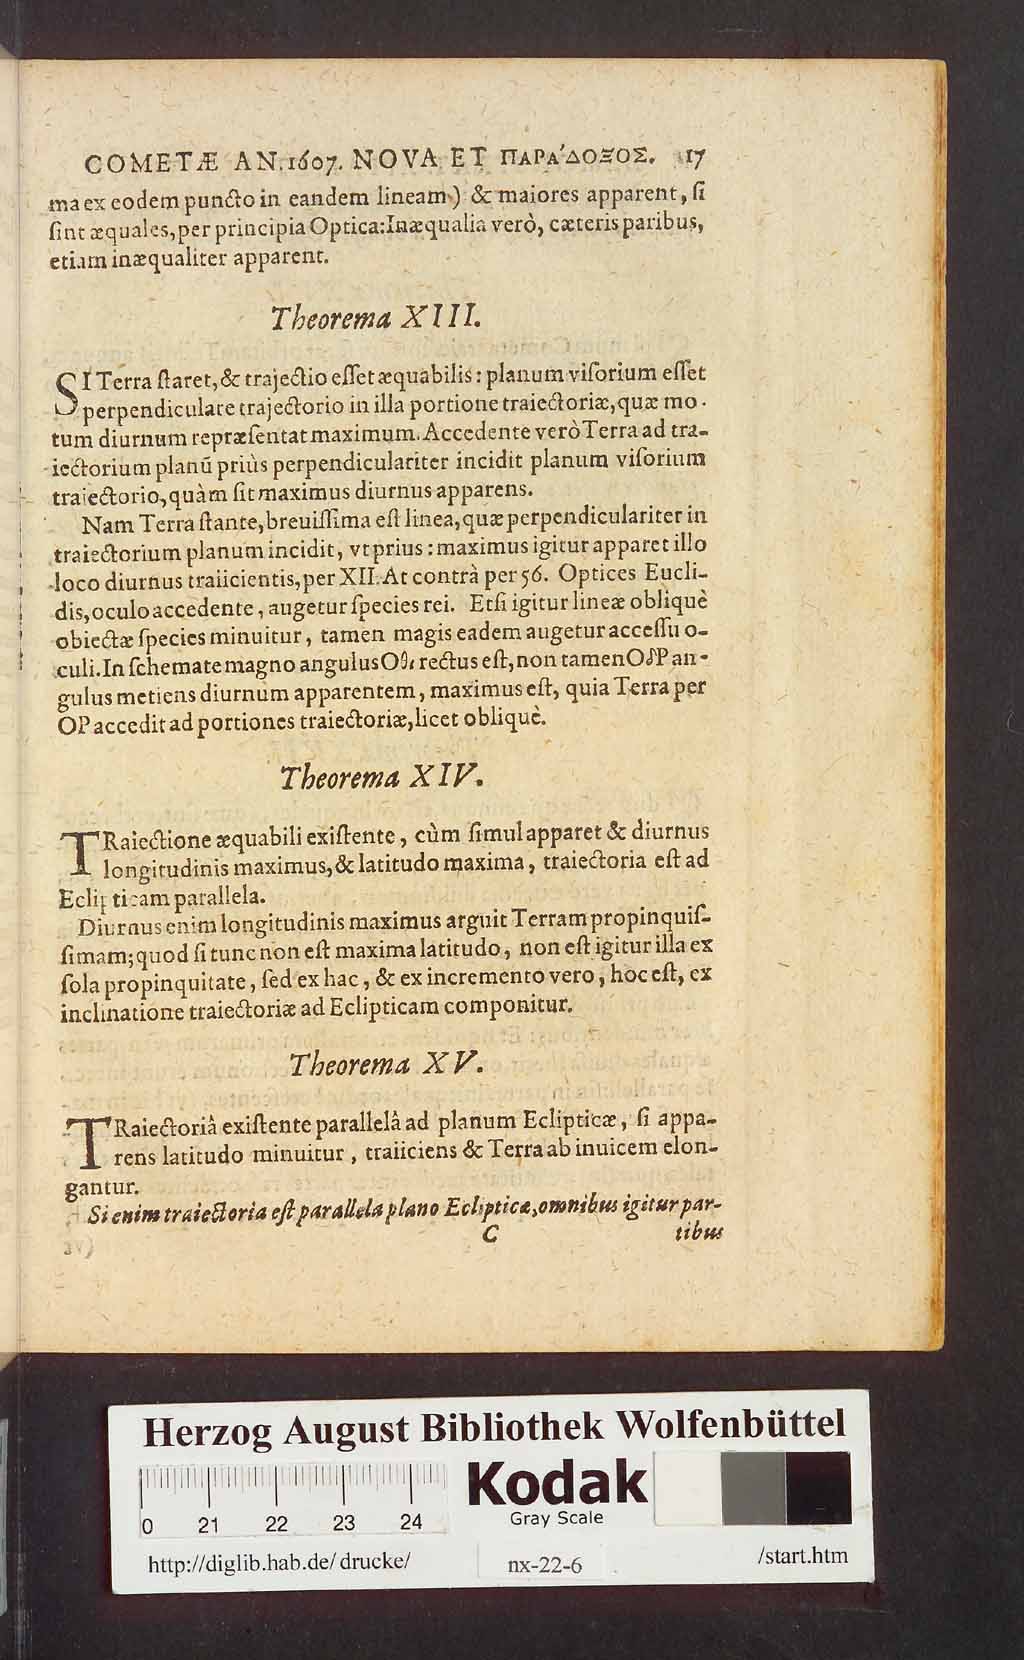 COMETÆ AN. 1607. NOVA ET ΠΑΡΑ´ΔΟΞΟΣ. 17
ma ex eodem puncto in eandem lineam) & maiores apparent, ſi
ſint æquales, per principia Optica: Inæqualia verò, cæteris paribus,
etiam inæqualiter apparent.
Theorema XIII.
SI Terra ſtaret, & trajectio eſſet æquabilis: planum viſorium eſſet
perpendiculare trajectorio in illa portione traiectoriæ, quæ mo-
tum diurnum repræſentat maximum. Accedente verò Terra ad tra-
iectorium planũ priùs perpendiculariter incidit planum viſorium
traiectorio, quàm ſit maximus diurnus apparens.
Nam Terra ſtante, breuiſſima eſt linea, quæ perpendiculariter in
traiectorium planum incidit, vt prius: maximus igitur apparet illo
loco diurnus traiicientis, per XII. At contrà per 56. Optices Eucli-
dis, oculo accedente, augetur ſpecies rei. Etſi igitur lineæ obliquè
obiectæ ſpecies minuitur, tamen magis eadem augetur acceſſu o-
culi. In ſchemate magno angulus rectus eſt, non tamen an-
gulus metiens diurnum apparentem, maximus eſt, quia Terra per
OP accedit ad portiones traiectoriæ, licet obliquè.
Theorema XIV.
TRaiectione æquabili exiſtente, cùm ſimul apparet & diurnus
longitudinis maximus, & latitudo maxima, traiectoria eſt ad
Eclipticam parallela.
Diurnus enim longitudinis maximus arguit Terram propinquiſ-
ſimam; quod ſi tunc non eſt maxima latitudo, non eſt igitur illa ex
ſola propinquitate, ſed ex hac, & ex incremento vero, hoc eſt, ex
inclinatione traiectoriæ ad Eclipticam componitur.
Theorema XV.
TRaiectoriâ exiſtente parallelâ ad planum Eclipticæ, ſi appa-
rens latitudo minuitur, traiiciens & Terra ab inuicem elon-
gantur.
Si enim traiectoria eſt parallela plano Eclipticæ, omnibus igitur par-
C tibus
Herzog August Bibliothek Wolfenbüttel
Kodak
Gray Scale
0 21 22 23 24
http://diglib.hab.de/drucke/ nx-22-6 /start.htm